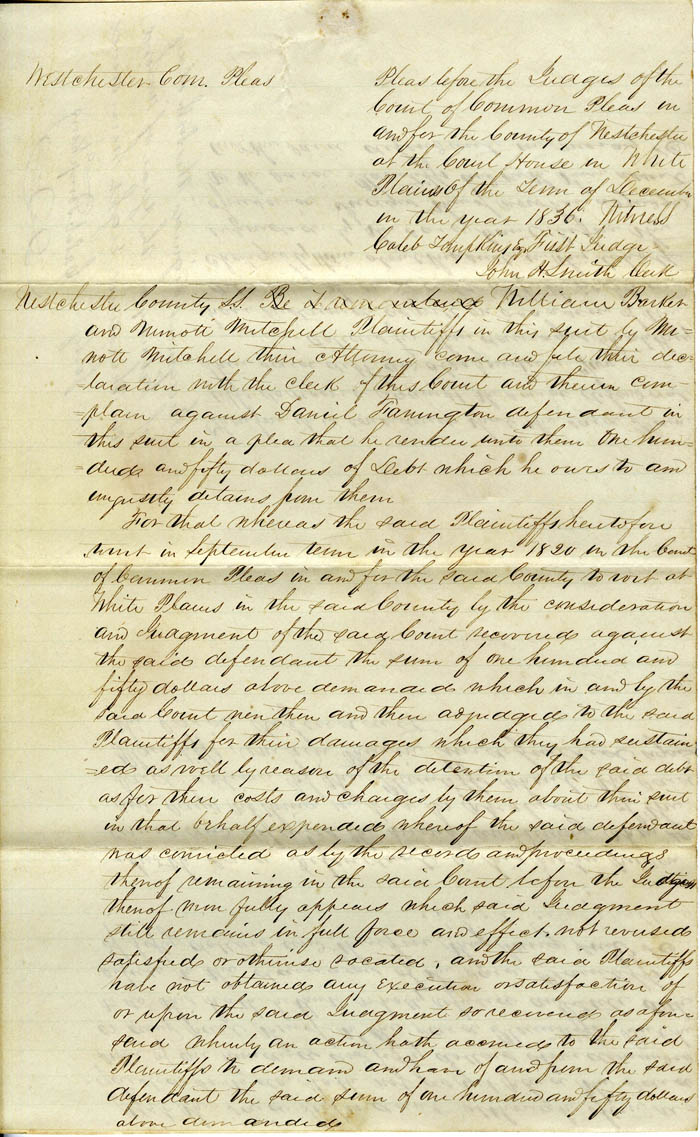 Westchester Com. Pleas
Pleas before the Judges of the
Court of Common Pleas in
and for the County of Westchester
at the Court House in White
Plains Of the Term of December
in the year 1836. Witness
Caleb Tompkins Esq First Judge
John H. Smith Clerk
Westchester County SS. Be it remembered William Barker
and Minott Mitchell Plaintiffs in this suit by Mi-
nott Mitchell their Attorney come and file their dec-
-laration with the clerk of this Court and therein com-
-plain against Daniel Farrington defendant in
this suit in a plea that he render unto them One hun-
-dred and fifty dollars of Debt which he owes to and
unjustly detains from them
For that whereas the said Plaintiffs heretofore
to wit in September term in the year 1820 in the Court
of Common Pleas in and for the said County to wit at
White Plains in the said County by the consideration
and Judgment of the said Court recovered against
the said defendant the sum of one hundred and
fifty dollars above demanded which in and by the
said Court were then and there adjudged to the said
Plaintiffs for their damages which they had sustain
-ed as well by reason of the detention of the said debt
as for their costs and charges by them about their suit
in that behalf expended whereof the said defendant
was convicted as by the record and proceedings
thereof remaining in the said Court before the Judges
thereof more fully appears which said Judgment
still remains in full force and effect. not reversed
satisfied or otherwise vacated, and the said Plaintiffs
have not obtained any Execution or satisfaction of
or upon the said Judgment so recovered as afore-
said whereby an action hath accrued to the said
Plaintiffs to demand and have of and from the said
defendant the said sum of one hundred and fifty dollars
above demanded